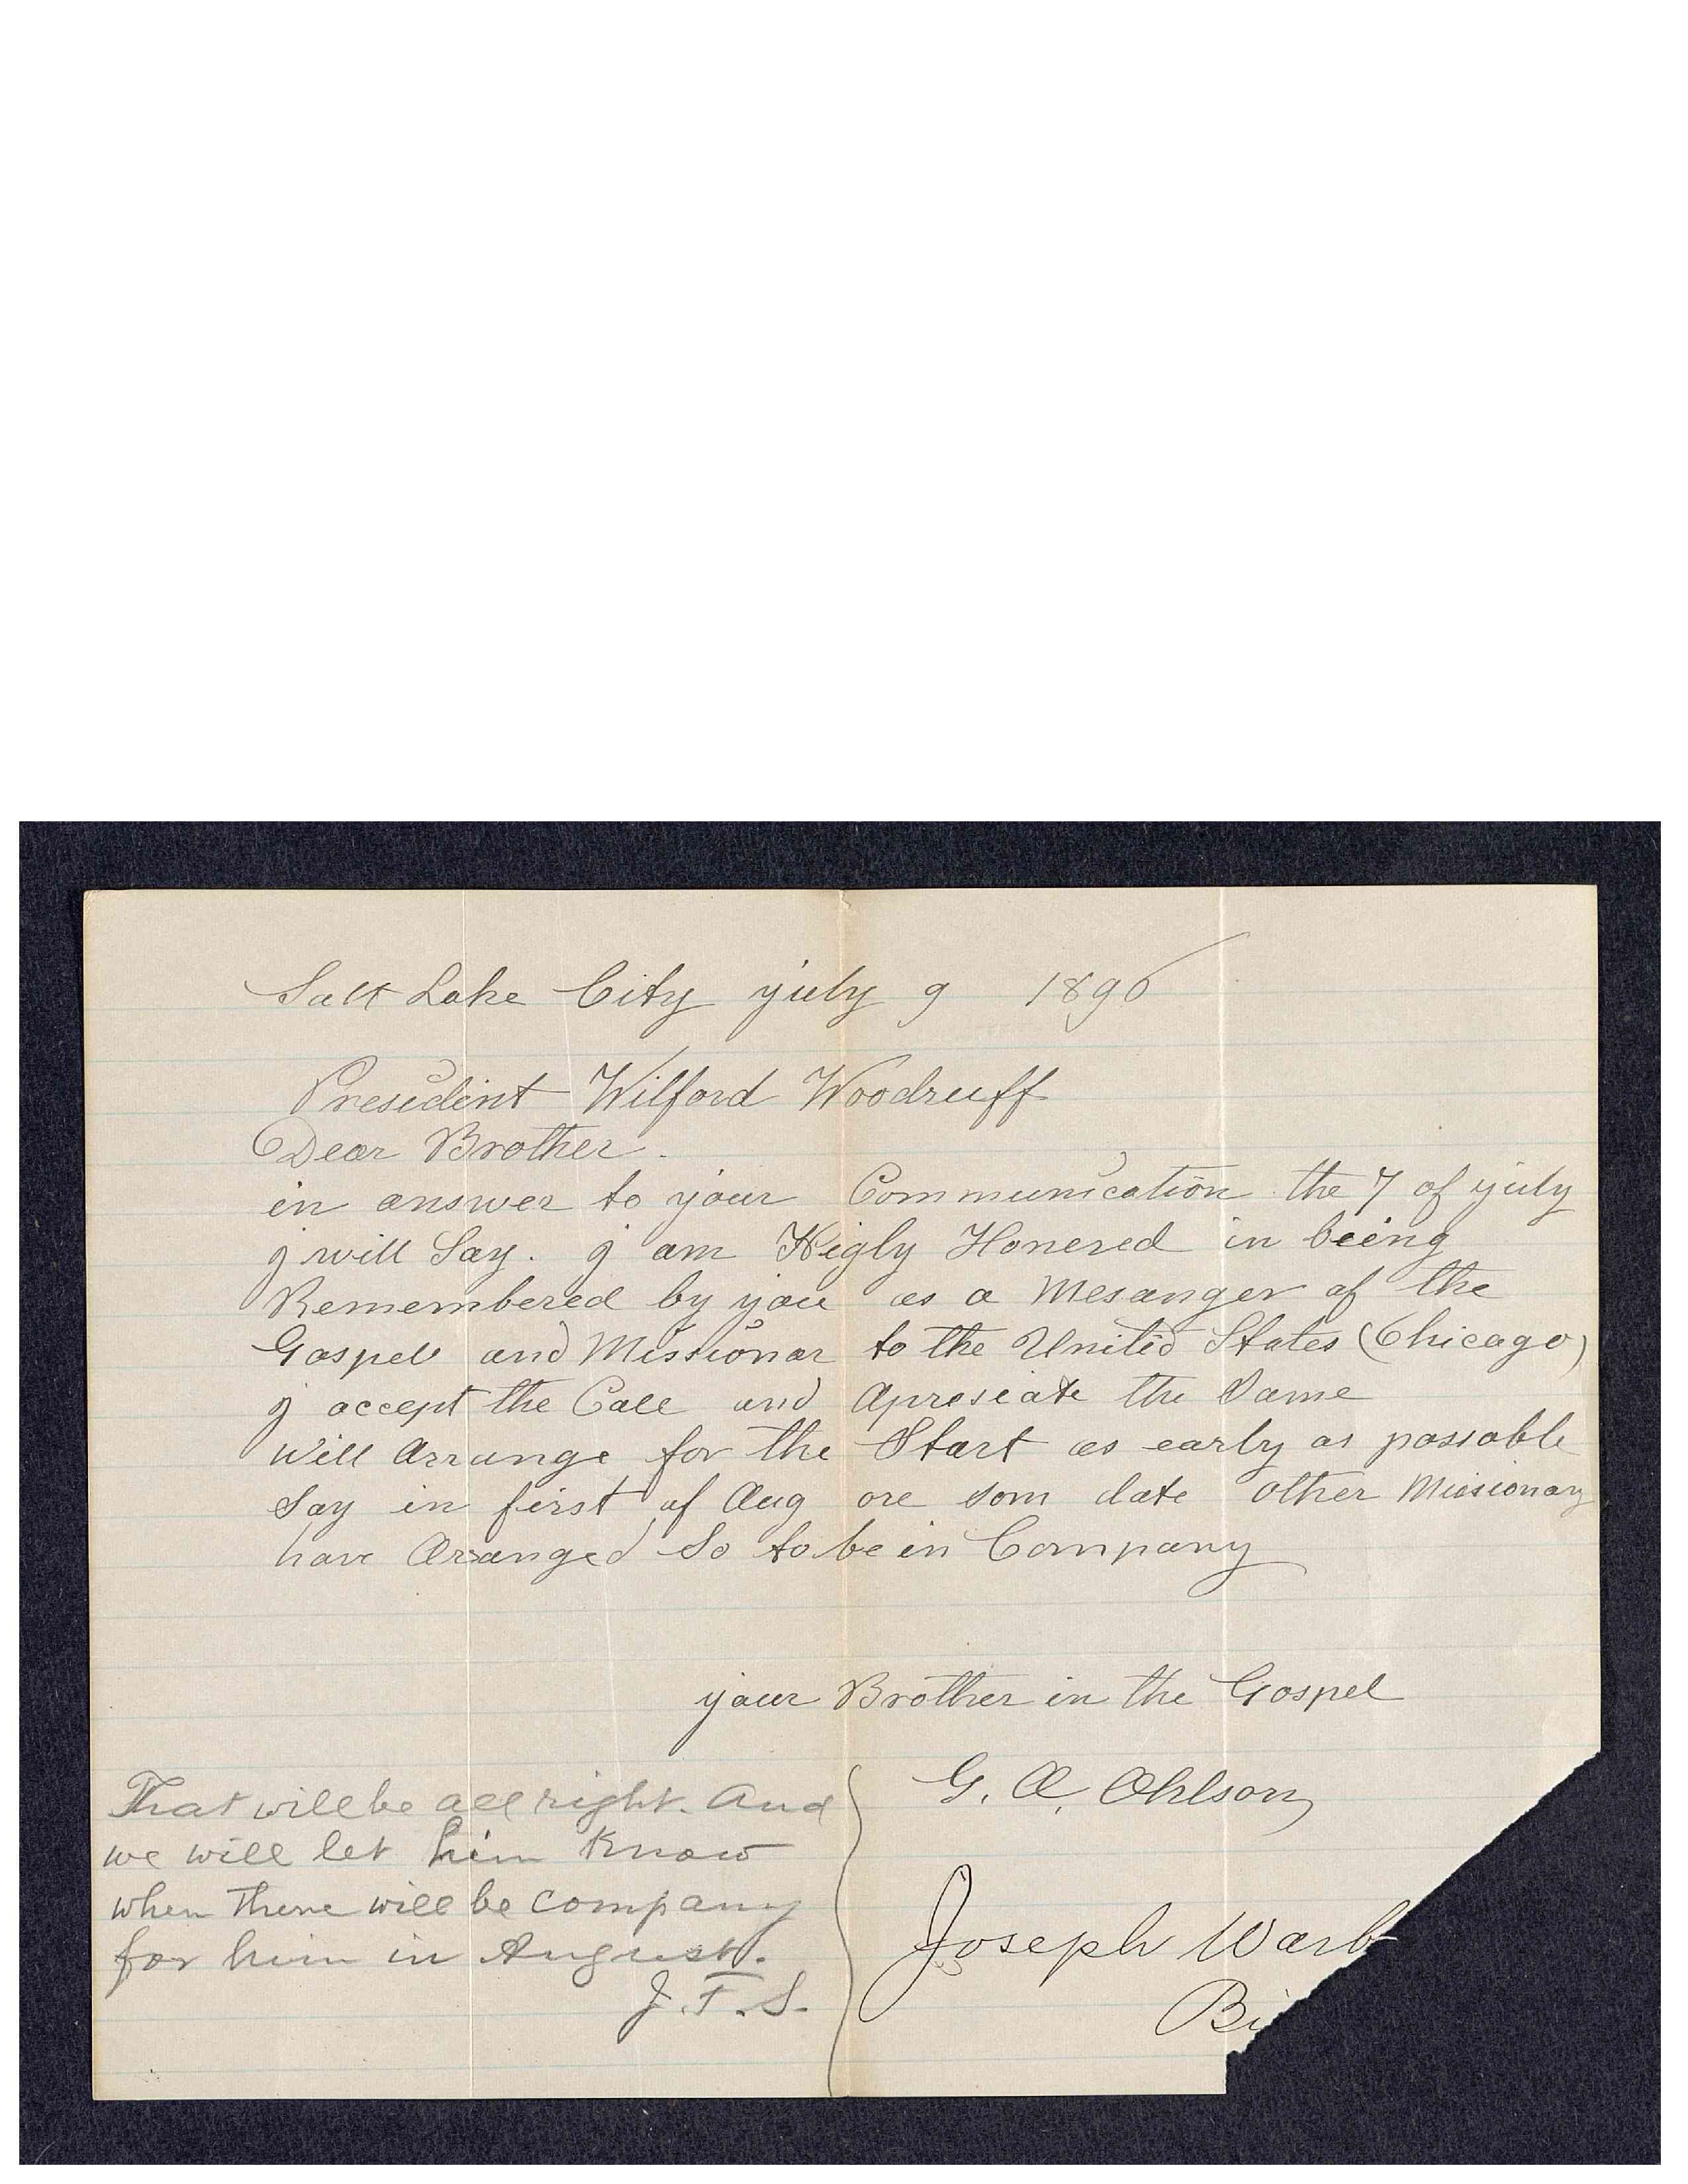 Salt Lake City july 9 1896
President Wilford Woodruff
Dear Brother.
in answer to your Communication the 7 of july
j will Say. j am Higly Honered in being
Remembered by you as a Mesanger of the
Gospel and Missionar to the United States (Chicago)
j accept the Call and Apresiate the Same
Will Arrange for the Start as early as possable
Say in first of Aug ore som date other Missionary
have Arranged So to be in Company
your Brother in the Gospel
G. A. Ohlson
Joseph Warb
Bi
That will be all right. And
we will let him know
when there will be company
for him in August.
J. F. S.